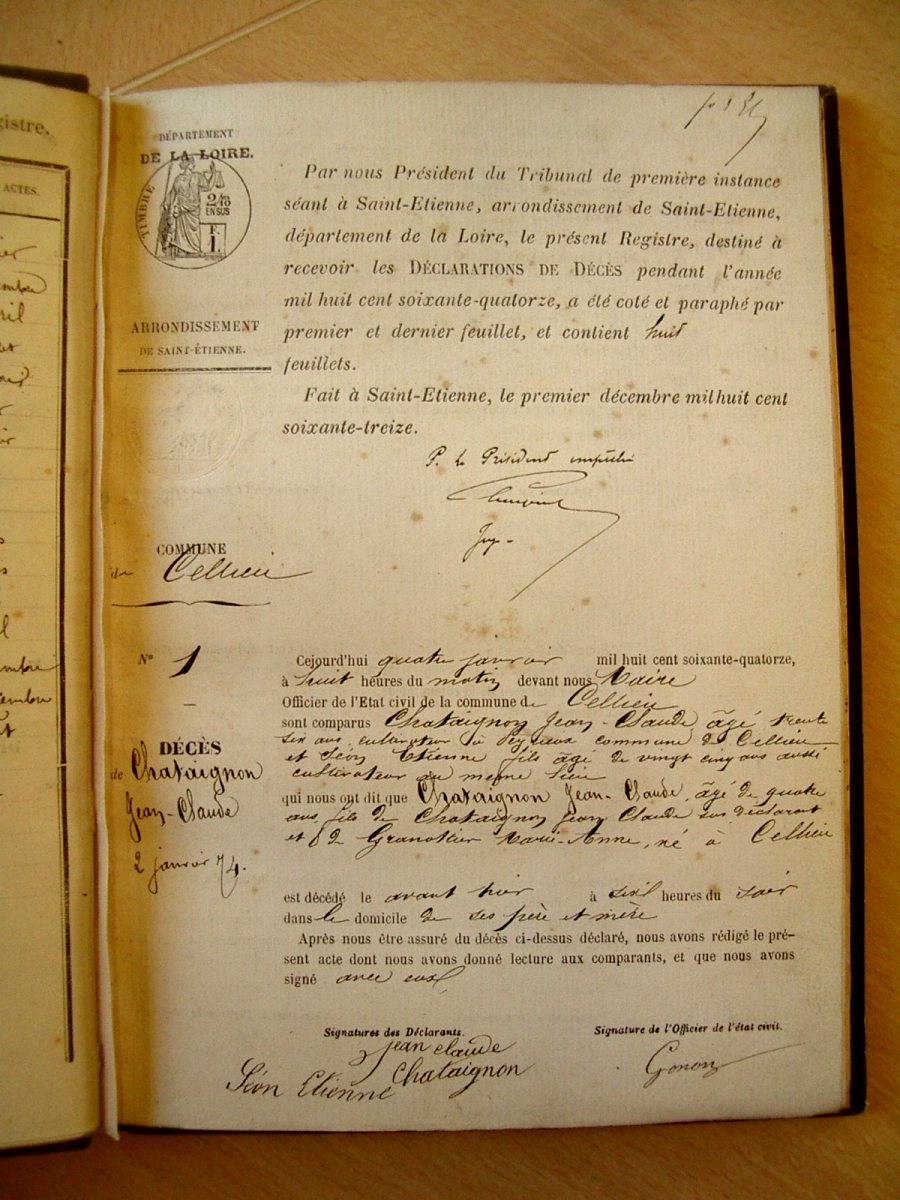 gistre.
ACTES.
DÉPARTEMENT
DE LA LOIRE.
TIMBRE
2/10
EN SUS
F
1.
ARRONDISSEMENT
DE SAINT-ÉTIENNE.
Par nous Président du Tribunal de première instance
séant à Saint-Etienne, arrondissement de Saint-Etienne,
département de la Loire, le présent Registre, destiné à
recevoir les DÉCLARATIONS DE DÉCÈS pendant l'année
mil huit cent soixante-quatorze, a été coté et paraphé par
premier et dernier feuillet, et contient huit
feuillets.
Fait à Saint-Etienne, le premier décembre mil huit cent
soixante-treize.
P. le Président empêché
Juge
COMMUNE
de Cellieu
N° 1
DÉCÈS
de Chataignon
Jean-Claude
2 janvier 74.
Cejourd'hui quatre janvier mil huit cent soixante-quatorze,
à huit heures du matin devant nous Maire
Officier de l'Etat civil de la commune de Cellieu
sont comparus Chataignon Jean-Claude âgé trente
six ans, cultivateur à commune de Cellieu
et Séon Etienne fils âgé de vingt cinq ans aussi
cultivateur au même lieu
qui nous ont dit que Chataignon Jean-Claude, âgé de quatre
ans, fils de Chataignon Jean Claude sus déclarant
et de Granottier Marie-Anne, né à Cellieu
est décédé le avant hier à heures du soir
dans le domicile de ses père et mère
Après nous être assuré du décès ci-dessus déclaré, nous avons rédigé le pré-
sent acte dont nous avons donné lecture aux comparants, et que nous avons
signé avec eux
Signatures des Déclarants.
Signature de l'Officier de l'état civil.
jean claude
Chataignon
Séon Etienne
Gonon